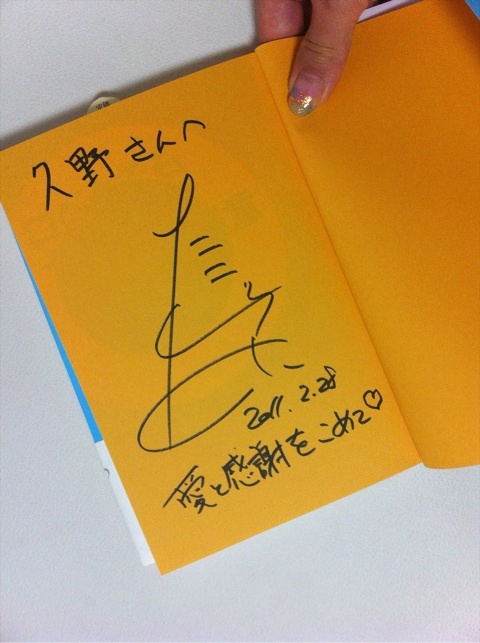 久野さんへ
2011.2.28
愛と感謝をこめて♡